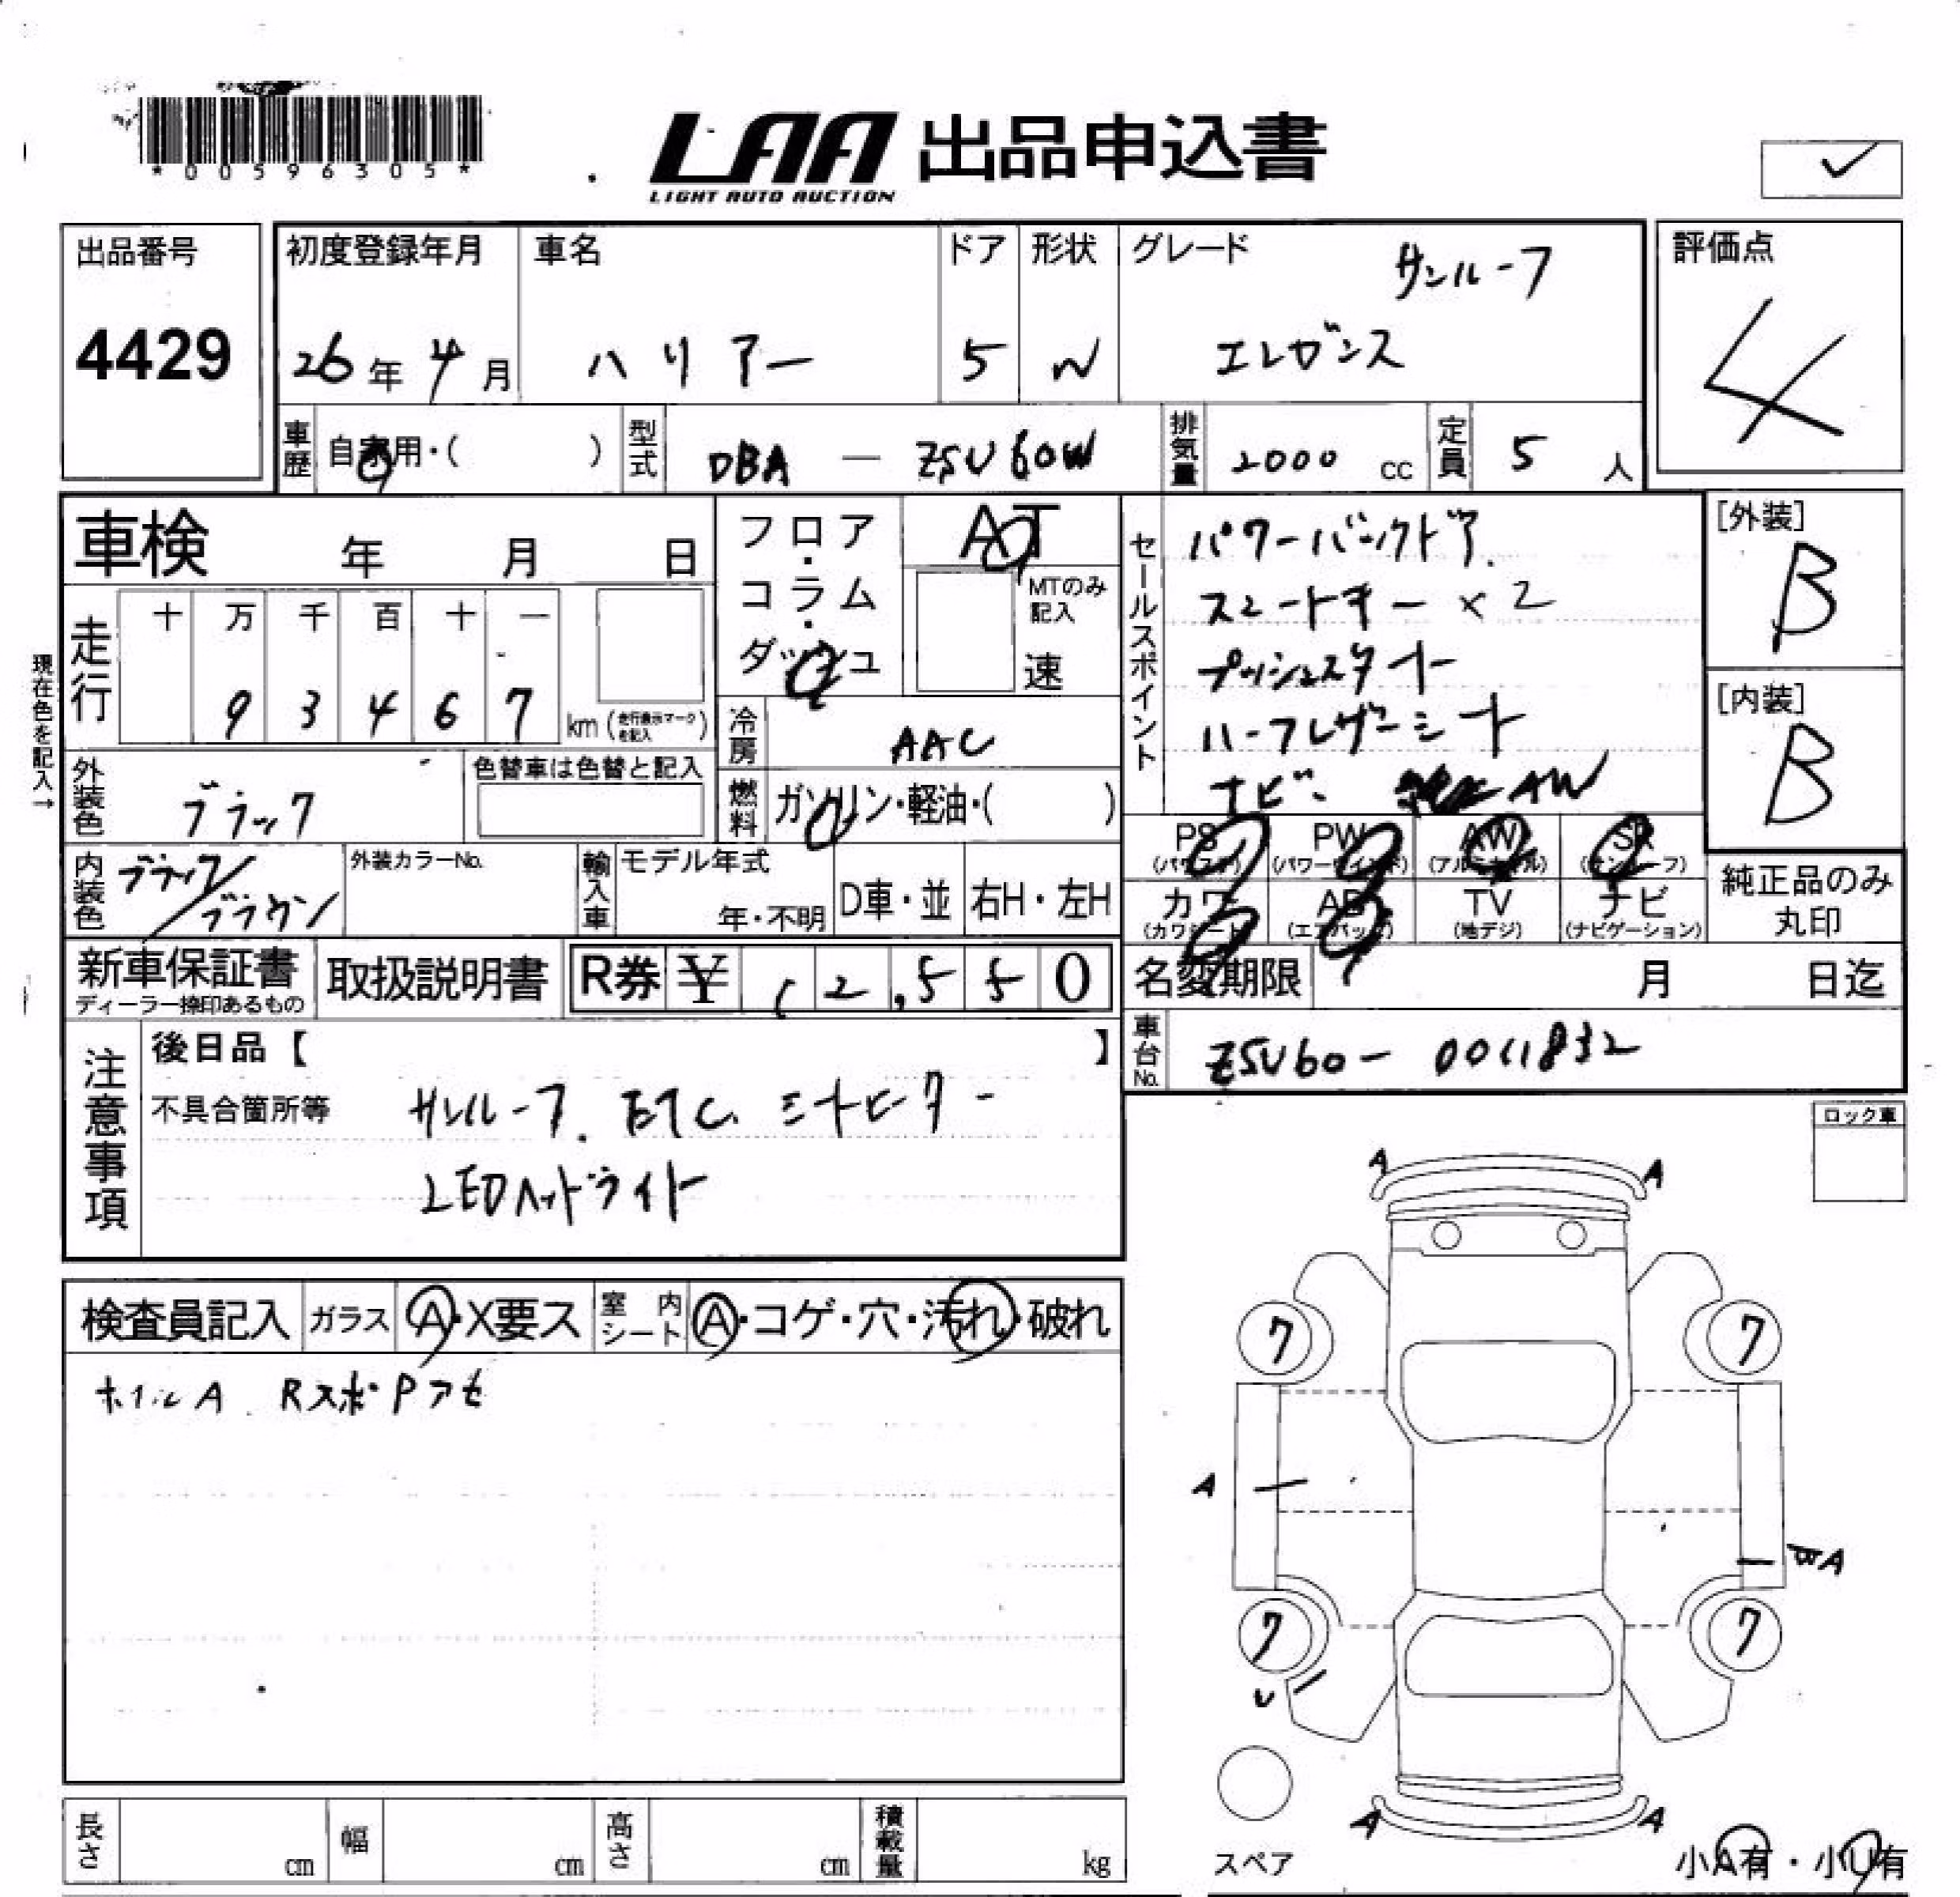 *00596305*
LAA 出品申込書
LIGHT AUTO AUCTION
出品番号
4429
初度登録年月
26年4月
車名
ハリアー
ドア
5
形状
W
グレード
サンルーフ
エレガンス
評価点
4
車歴
自家用・( )
型式
DBA — ZSU60W
排気量
2000 cc
定員
5 人
車検 年 月 日
フロア・コラム・ダッシュ
AT
MTのみ記入
速
現在色を記入→
走行
十 万 千 百 十 一
9 3 4 6 7
km (走行表示マークを記入)
冷房
AAC
燃料
ガソリン・軽油・( )
外装色
ブラック
色替車は色替と記入
内装色
ブラック/ブラウン
外装カラーNo.
輸入車
モデル年式
年・不明
D車・並
右H・左H
セールスポイント
パワーバックドア.
スマートキー×2
プッシュスタート
ハーフレザーシート
ナビ、 純正AW
[外装]
B
[内装]
B
PS (パワステ)
PW (パワーウインド)
AW (アルミホイル)
SR (サンルーフ)
カワ (カワシート)
AB (エアバック)
TV (地デジ)
ナビ (ナビゲーション)
純正品のみ
丸印
新車保証書
ディーラー捺印あるもの
取扱説明書
R券 ¥ 12,550
名変期限 月 日迄
車台No.
ZSU60- 0011832
注意事項
後日品【 】
不具合箇所等
サンルーフ. ETC.
LEDヘッドライト
ロック車
検査員記入
ガラス
A・X要ス
室内シート
A・コゲ・穴・汚れ・破れ
ホイルA Rスポ・Pアセ
A A
7 7
A
A
7 7
U
A A
スペア
小A有・小U有
長さ cm
幅 cm
高さ cm
積載量 kg